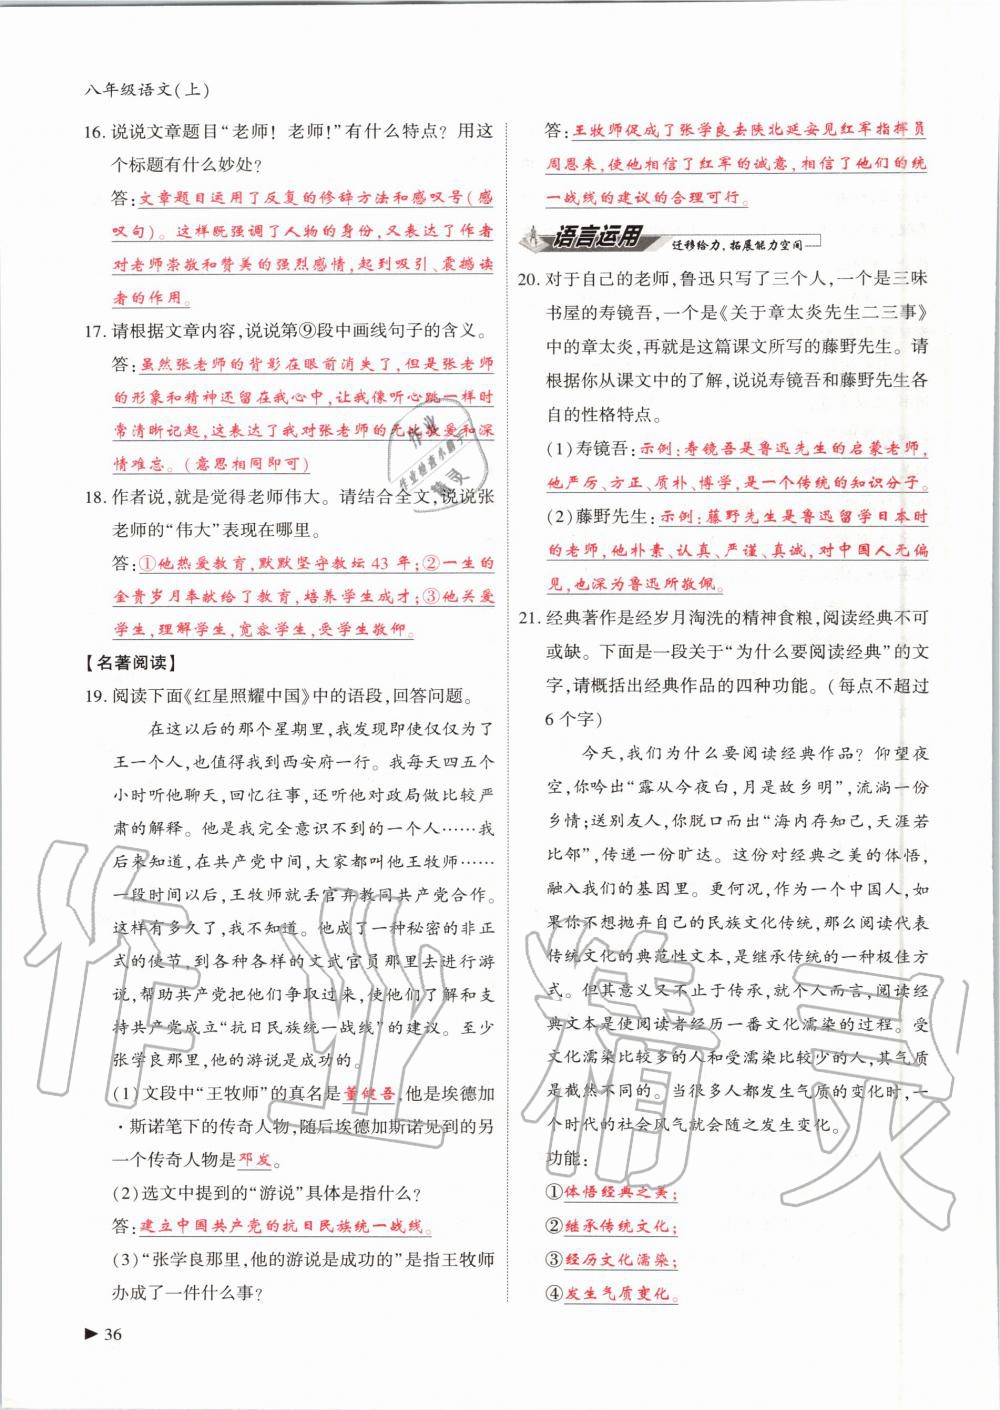 八年级语文(上)
16. 说说文章题目“老师！老师！”有什么特点？用这
个标题有什么妙处？
答：文章题目运用了反复的修辞方法和感叹号(感
叹句)。这样既强调了人物的身份，又表达了作者
对老师崇敬和赞美的强烈感情，起到吸引、震撼读
者的作用。
17. 请根据文章内容，说说第⑨段中画线句子的含义。
答：虽然张老师的背影在眼前消失了，但是张老师
的形象和精神还留在我心中，让我像听心跳一样时
常清晰记起，这表达了我对张老师的无比敬爱和深
情难忘。(意思相同即可)
18. 作者说，就是觉得老师伟大。请结合全文，说说张
老师的“伟大”表现在哪里。
答：①他热爱教育，默默坚守教坛 43 年；②一生的
金贵岁月奉献给了教育，培养学生成才；③他关爱
学生，理解学生，宽容学生，受学生敬仰。
【名著阅读】
19. 阅读下面《红星照耀中国》中的语段，回答问题。
在这以后的那个星期里，我发现即使仅仅为了
王一个人，也值得我到西安府一行。我每天四五个
小时听他聊天，回忆往事，还听他对政局做比较严
肃的解释。他是我完全意识不到的一个人……我
后来知道，在共产党中间，大家都叫他王牧师……
一段时间以后，王牧师就丢官弃教同共产党合作。
这样有多久了，我不知道。他成了一种秘密的非正
式的使节，到各种各样的文武官员那里去进行游
说，帮助共产党把他们争取过来，使他们了解和支
持共产党成立“抗日民族统一战线”的建议。至少
张学良那里，他的游说是成功的。
(1) 文段中“王牧师”的真名是董健吾，他是埃德加
·斯诺笔下的传奇人物，随后埃德加斯诺见到的另
一个传奇人物是邓发。
(2) 选文中提到的“游说”具体是指什么？
答：建立中国共产党的抗日民族统一战线。
(3) “张学良那里，他的游说是成功的”是指王牧师
办成了一件什么事？
▶ 36
答：王牧师促成了张学良去陕北延安见红军指挥员
周恩来，使他相信了红军的诚意，相信了他们的统
一战线的建议的合理可行。
语言运用 迁移给力，拓展能力空间
20. 对于自己的老师，鲁迅只写了三个人，一个是三味
书屋的寿镜吾，一个是《关于章太炎先生二三事》
中的章太炎，再就是这篇课文所写的藤野先生。请
根据你从课文中的了解，说说寿镜吾和藤野先生各
自的性格特点。
(1) 寿镜吾：示例：寿镜吾是鲁迅先生的启蒙老师，
他严厉、方正、质朴、博学，是一个传统的知识分子。
(2) 藤野先生：示例：藤野先生是鲁迅留学日本时
的老师，他朴素、认真、严谨、真诚，对中国人无偏
见，也深为鲁迅所敬佩。
21. 经典著作是经岁月淘洗的精神食粮，阅读经典不可
或缺。下面是一段关于“为什么要阅读经典”的文
字，请概括出经典作品的四种功能。(每点不超过
6 个字)
今天，我们为什么要阅读经典作品？仰望夜
空，你吟出“露从今夜白，月是故乡明”，流淌一份
乡情；送别友人，你脱口而出“海内存知己，天涯若
比邻”，传递一份旷达。这份对经典之美的体悟，
融入我们的基因里。更何况，作为一个中国人，如
果你不想抛弃自己的民族文化传统，那么阅读代表
传统文化的典范性文本，是继承传统的一种极佳方
式。但其意义又不止于传承，就人而言，阅读经
典文本是使阅读者经历一番文化濡染的过程。受
文化濡染比较多的人和受濡染比较少的人，其气质
是截然不同的。当很多人都发生气质的变化时，一
个时代的社会风气就会随之发生变化。
功能：
①体悟经典之美；
②继承传统文化；
③经历文化濡染；
④发生气质变化。
作业精灵